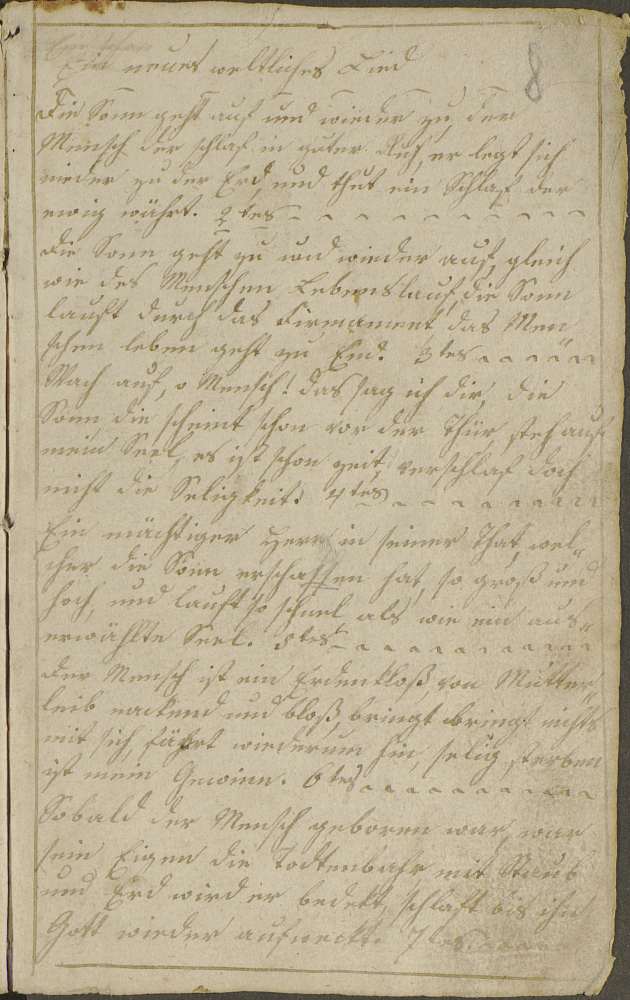 8
Ein neues weltliches Lied
Die Sonn geht auf und wieder zu, der
Mensch der schlaf in guter Ruh, er legt sich
nieder zu der Erd, und thut ein Schlaf der
ewig währt. 2tes
Die Sonn geht zu und wieder auf, gleich
wie des Menschen Lebenslauf, die Sonn
lauft durch das Firmament das Men
schen leben geht zu End. 3tes
Wach auf, o Mensch! das sag ich dir, die
Sonn die scheint schon vor der Thür, steh auf
mein Seel, es ist schon zeit, verschlaf doch
nicht die Seligkeit. 4tes
Ein mächtiger Herr in seiner That, wel„
cher die Sonn erschaffen hat, so groß und
hoch, und lauft so schnel als wie ein aus„
erwählte Seel. 5tes
Der Mensch ist ein Erdenkloß von Mutter„
leib nackend und bloß, bringt bringt nichts
mit sich, fährt wiederum hin, selig sterben
ist mein Gewinn. 6tes
Sobald der Mensch geboren war, war
sein Eigen die Todtenbahr mit Staub
und Erd wird er bedekt, schlaft bis ihn
Gott wieder aufweckt. 7tes